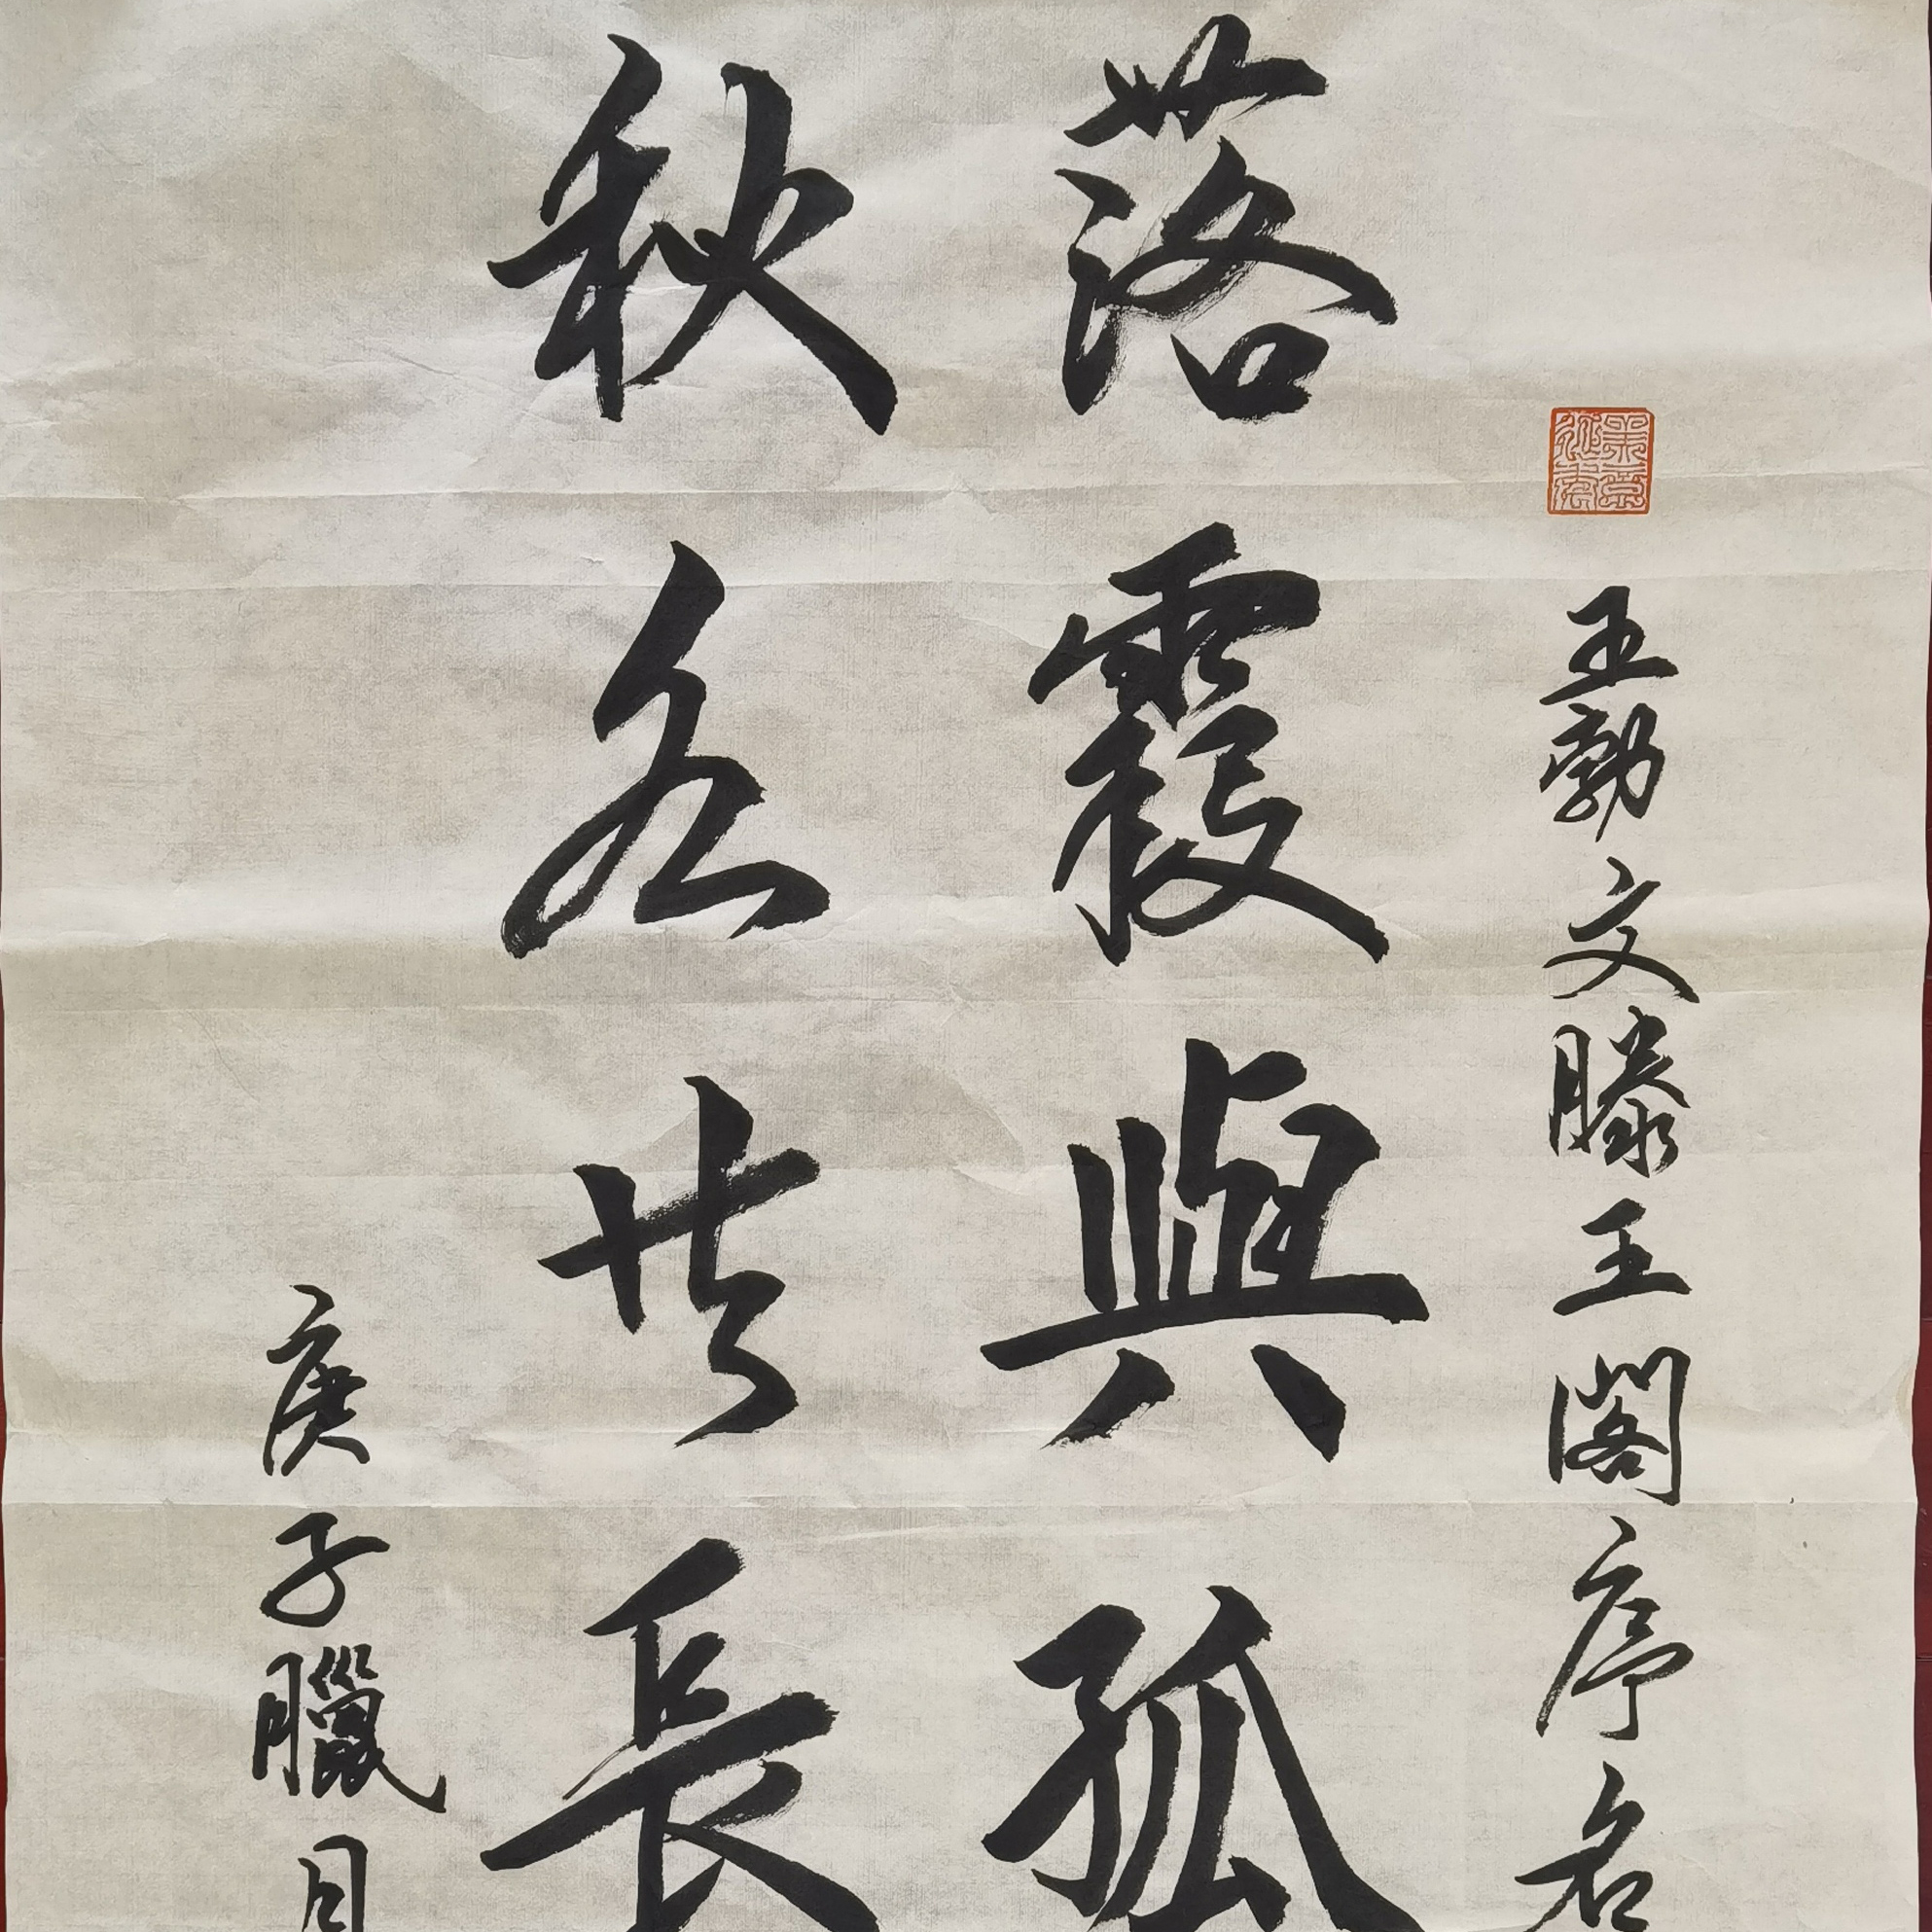 王勃文滕王閣序名
落霞與孤
秋水共長
庚子臘月